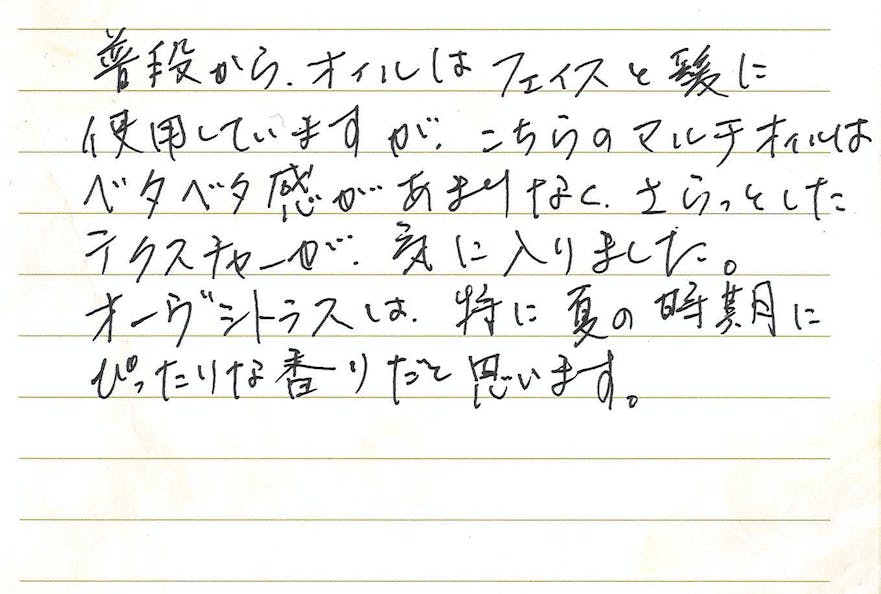 普段から、オイルはフェイスと髪に
使用していますが、こちらのマルチオイルは
ベタベタ感があまりなく、さらっとした
テクスチャーが、気に入りました。
オーヴシトラスは、特に夏の時期に
ぴったりな香りだと思います。